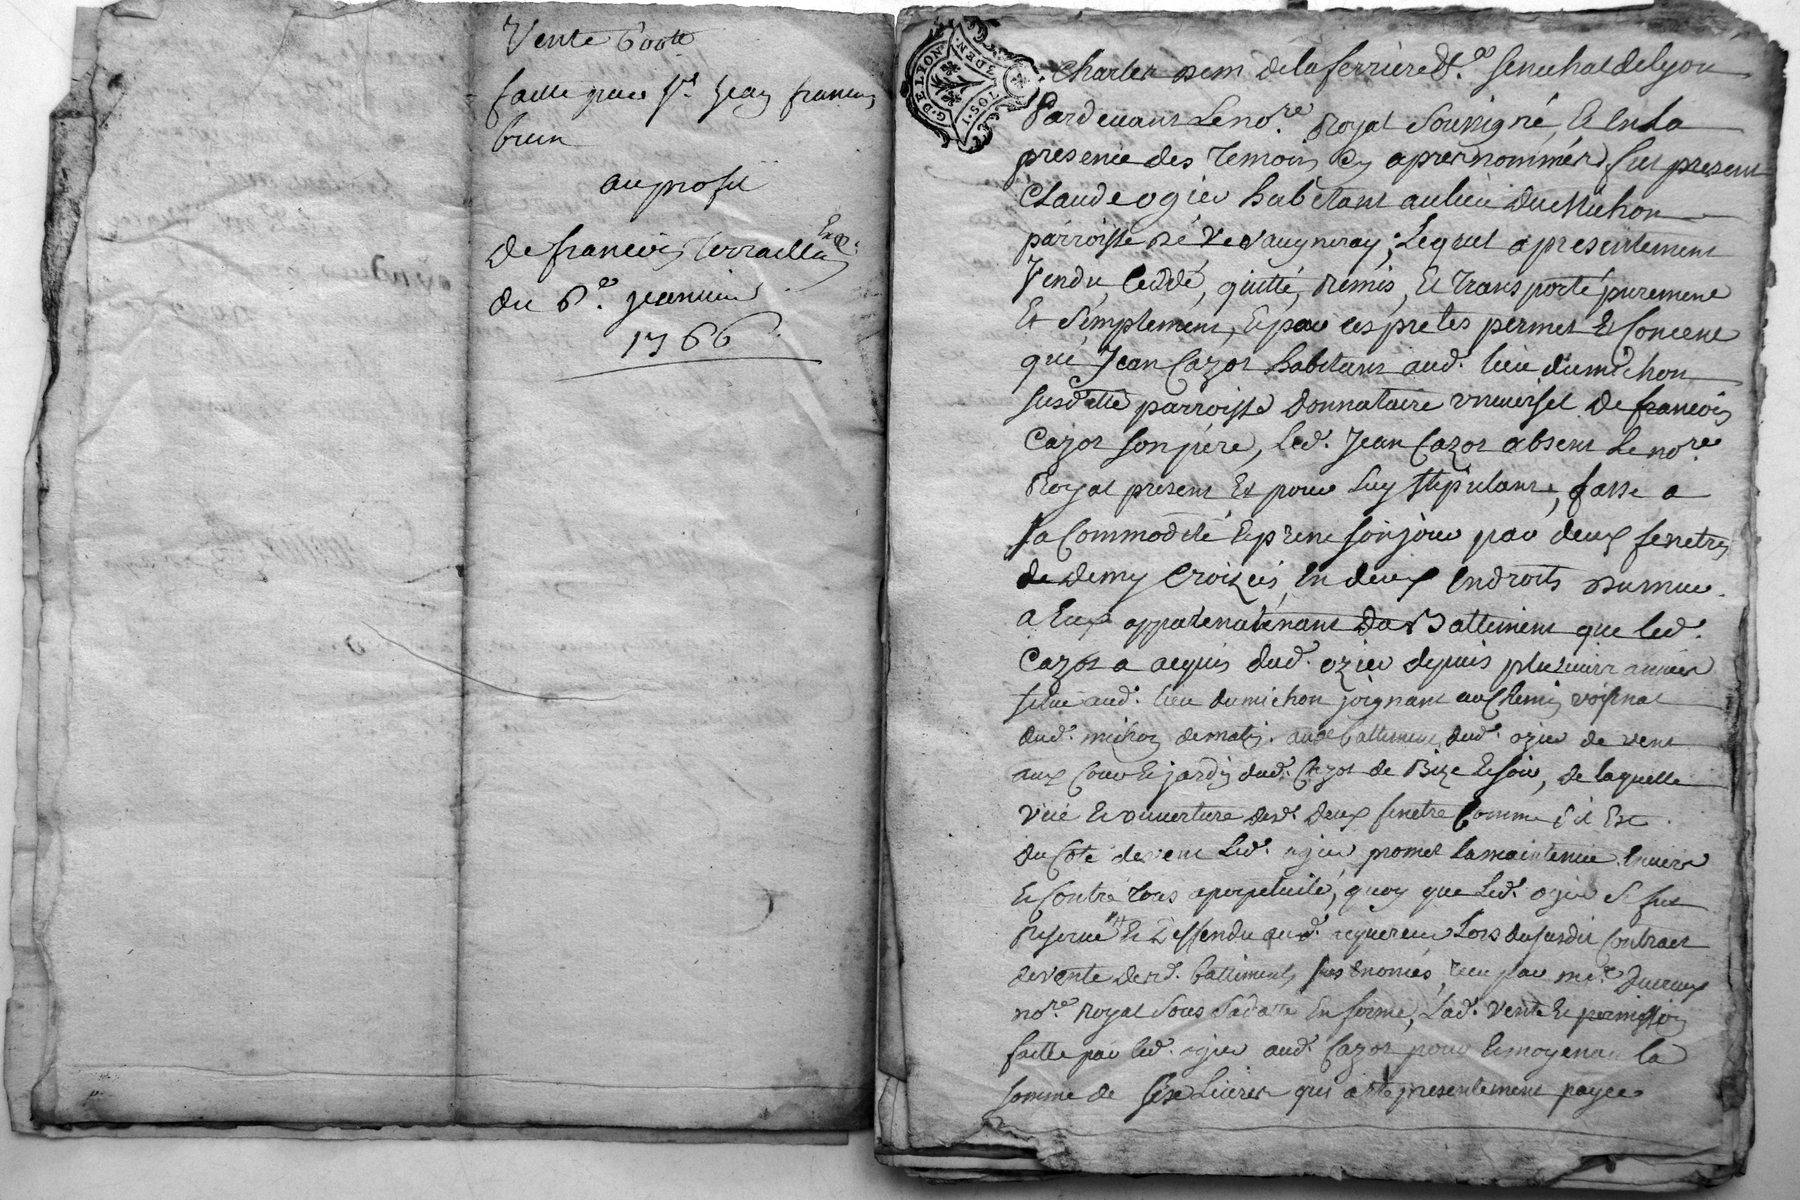 Vente 600tt
faitte par Sr. Jean francois
brun
au profit
De francois Terraillon
Exp.
du 6.e Janvier
1766
G. DE LYON
3 DEN.
Charles De la ferriere &.a Senechal de lyon
Pardevant Le nore. Royal Soussigné, Et En la
presence des Temoins Cy apres nommés, fut present
Claude ogier habitant au lieu Du Michon
parroisse De Vaugneray; Lequel a presentement
Vendu, Ceddé, quitté, Remis, Et Transporté purement
Et Simplement, Et par ces pntes permet Et Consent
que Jean Cazot habitant aud. lieu du michon
susditte parroisse Donnataire vniuersel De francois
Cazot Son pere, Led. Jean Cazot absent Le nore.
Royal present Et pour Luy Stipulant, fasse a
sa Commodité Et prene Son jour par deux fenetres
de Demy Croizées, En deux Endroits Du mur
a Eux appartenant Du Battiment que led.
Cazot a acquis dud. ozier depuis plusieurs années
situé aud. lieu du michon joignant au Chemin voisinal
dud. michon de matin. aud. battiment dud. ozier de vent
aux Cour Et jardin dud. Cazot de Bize Et soir, de laquelle
vüe Et ouverture desd. deux fenetre Comme s'il Est
du Cote de vent Led. ogier promet La maintenüe Envers
Et Contre Tous a perpetuité, quoy que Led. ogier Se fut
Reservé Et Deffendu aud. acquereur Lors du susdit Contract
de vente desd. battiments sus Enoncés, recu par me.
nore. Royal Sous Sa datte En forme, Lad. vente Et permission
faitte par led. ogier aud. Cazot pour Et moyenant la
somme de Six Livres qui a Eté presentement payée